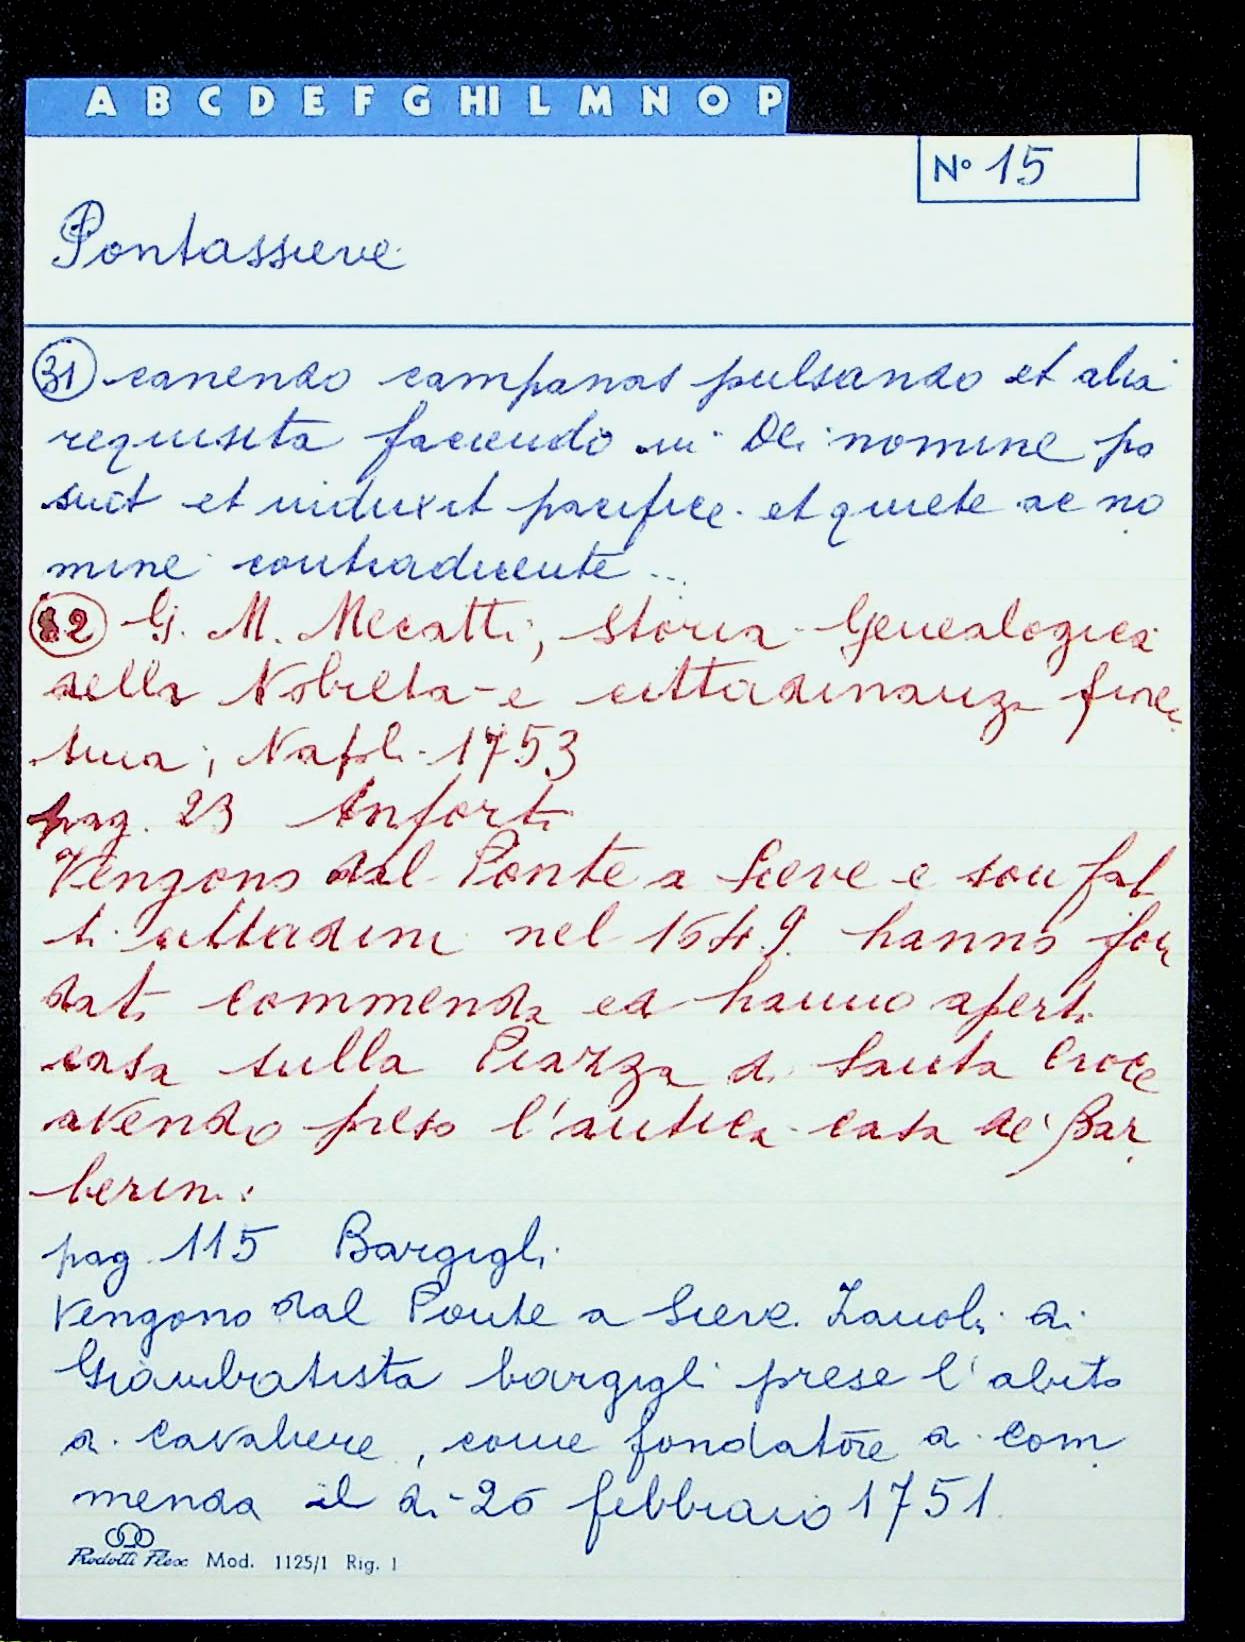 A B C D E F G HI L M N O P
N° 15
Pontassieve
31) canendo campanas pulsando et alia
requisita faciendo in Dei nomine po
suit et induxit pacifice et quiete ac no
mine contradicente...
32) G. M. Mecatti, Storia Genealogica
della Nobiltà e cittadinanza fioren
tina, Napoli 1753
pag. 23 Anforti
Vengono dal Ponte a Sieve e son fat
ti cittadini nel 1649. hanno fon
dati commenda ed hanno aperta
casa sulla Piazza di Santa Croce
avendo preso l'antica casa de' Bar
berini.
pag. 115 Bargigli
Vengono dal Ponte a Sieve. Zanobi di
Giambatista bargigli prese l'abito
di cavaliere, come fondatore di com
menda il dì 26 febbraio 1751.
Rodotti Flex Mod. 1125/1 Rig. 1